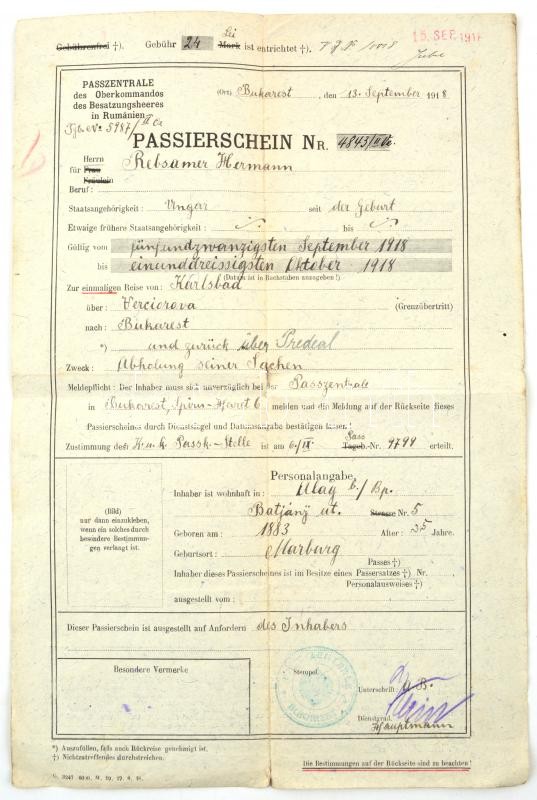 15. SEP. 1918
Gebührenfrei †). Gebühr 24 Lei Mark ist entrichtet †).
PASSZENTRALE
des Oberkommandos
des Besatzungsheeres
in Rumänien
(Ort) Bukarest, den 13. September 1918
Tgb. No 5987/IIa
PASSIERSCHEIN NR. 4843/IIa.
Herrn
für Frau Rebsamer Hermann
Fräulein
Beruf:
Staatsangehörigkeit: Ungar seit der Geburt
Etwaige frühere Staatsangehörigkeit: bis
Gültig vom fünfundzwanzigsten September 1918
bis einunddreissigsten Oktober 1918
(Datum ist in Buchstaben anzugeben!)
Zur einmaligen Reise von: Karlsbad
über: Verciorova (Grenzübertritt)
nach: Bukarest
*) und zurück über Predeal
Zweck: Abholung seiner Sachen
Meldepflicht: Der Inhaber muss sich unverzüglich bei der Passzentrale
in Bukarest, Spiru-Haret 6 melden und die Meldung auf der Rückseite dieses
Passierscheines durch Dienstsiegel und Datumsangabe bestätigen lassen!
Zustimmung des K.u.k. Passk.-Stelle ist am 6/IX. Pass Tageb.-Nr. 4794 erteilt.
Personalangabe
Inhaber ist wohnhaft in:
Batjanÿ ut. Strasse Nr. 5
(Bild)
nur dann einzukleben,
wenn ein solches durch
besondere Bestimmun-
gen verlangt ist.
Geboren am: 1883 Alter: 35 Jahre.
Geburtsort: Marburg
Passes †)
Inhaber dieses Passierscheines ist im Besitze eines Passersatzes †) Nr.
Personalausweises †)
ausgestellt vom:
Dieser Passierschein ist ausgestellt auf Anfordern des Inhabers
Besondere Vermerke
Stempel.
Unterschrift:
Dienstgrad.
Hauptmann
*) Auszufüllen, falls auch Rückreise genehmigt ist.
†) Nichtzutreffendes durchstreichen.
Die Bestimmungen auf der Rückseite sind zu beachten!